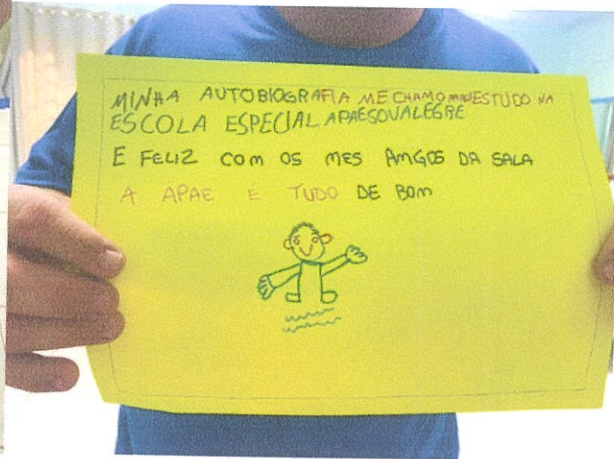 MINHA AUTOBIOGRAFIA ME CHAMO ESTUDO NA
ESCOLA ESPECIAL APAESOUALEGRE
E FELIZ COM OS MES AMGOS DA SALA
A APAE É TUDO DE BOM